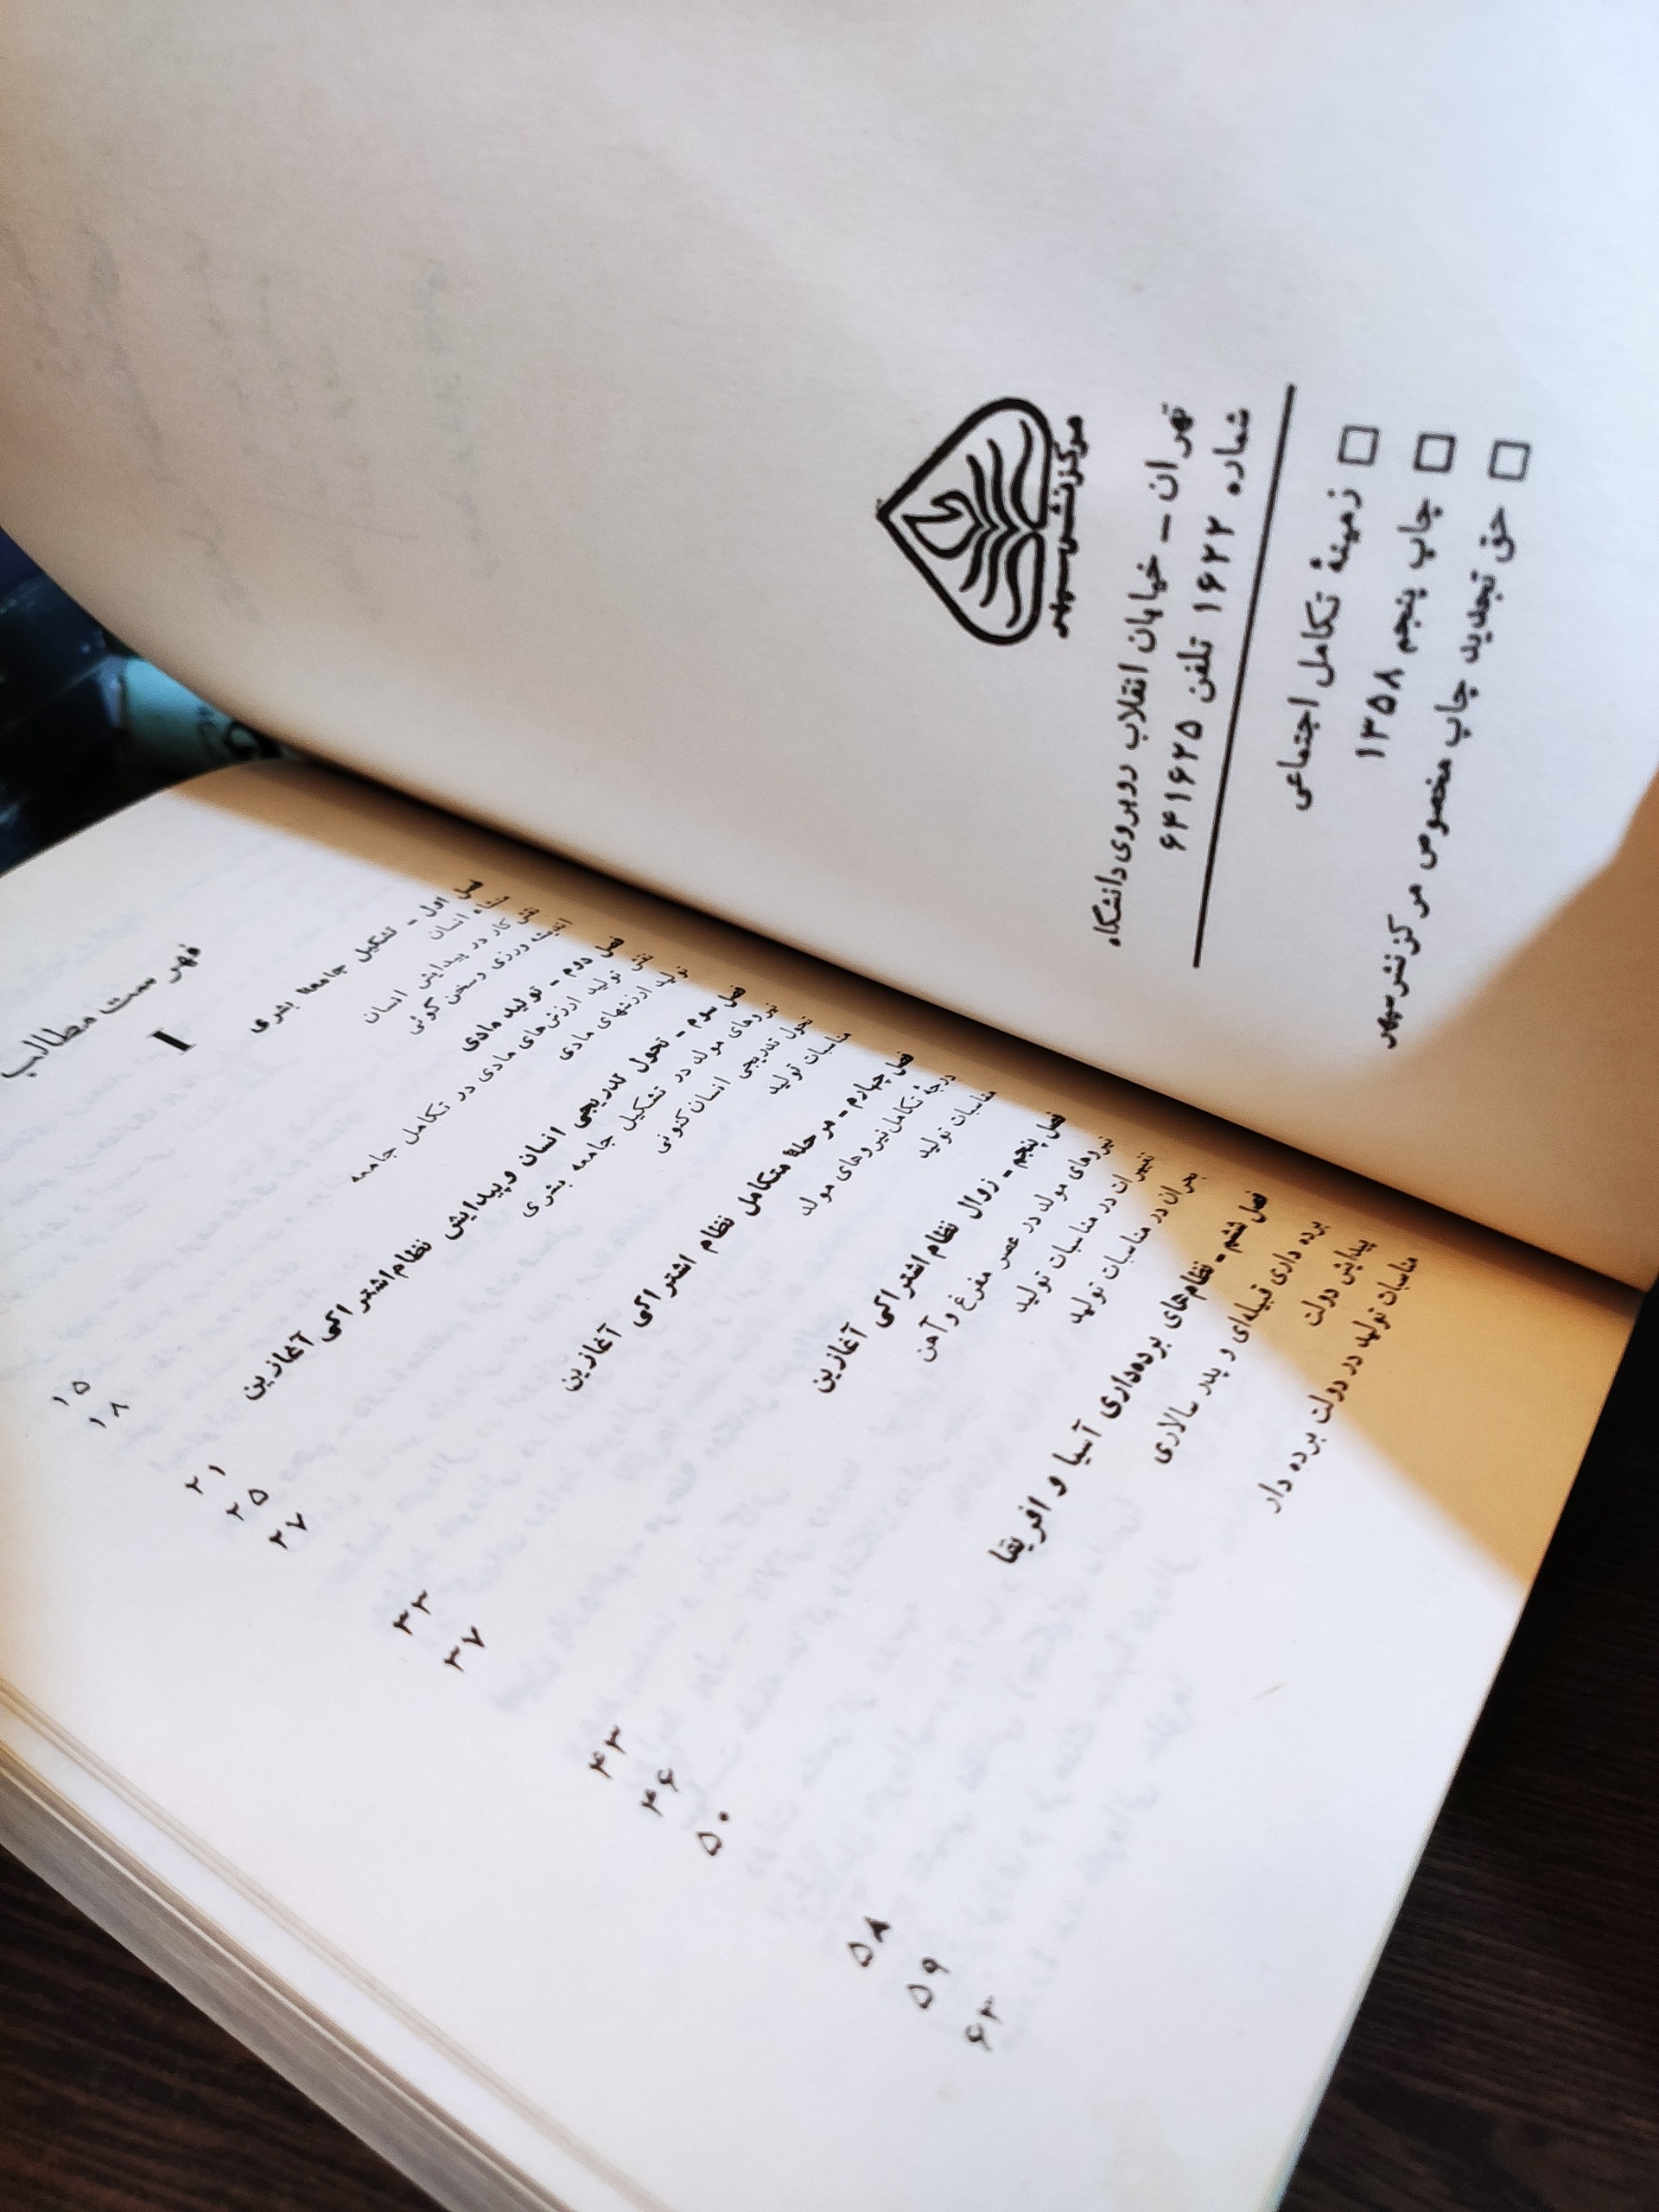 مرکز نشر سپهر
تهران - خیابان انقلاب روبروی دانشگاه
شماره ۱۶۲۲ تلفن ۶۴۱۶۲۵
زمینهٔ تکامل اجتماعی
چاپ پنجم ۱۳۵۸
حق تجدید چاپ مخصوص مرکز نشر سپهر
فهرست مطالب
I
فصل اول - تشکیل جامعهٔ بشری
منشاء انسان ۱۵
نقش کار در پیدایش انسان ۱۸
اندیشه ورزی و سخن گوئی
فصل دوم - تولید مادی
نقش تولید ارزش‌های مادی در تکامل جامعه ۲۱
تولید ارزشهای مادی ۲۵
۲۷
فصل سوم - تحول تدریجی انسان و پیدایش نظام اشتراکی آغازین
نیروهای مولد در تشکیل جامعه بشری
تحول تدریجی انسان کنونی ۳۳
مناسبات تولید ۳۷
فصل چهارم - مرحلهٔ متکامل نظام اشتراکی آغازین
درجهٔ تکامل نیروهای مولد
مناسبات تولید
فصل پنجم - زوال نظام اشتراکی آغازین
نیروهای مولد در عصر مفرغ و آهن ۴۳
تغییرات در مناسبات تولید ۴۶
بحران در مناسبات تولید ۵۰
فصل ششم - نظام‌های برده‌داری آسیا و افریقا
برده داری قبیله‌ای و پدر سالاری ۵۸
پیدایش دولت ۵۹
مناسبات تولید در دولت برده دار ۶۳